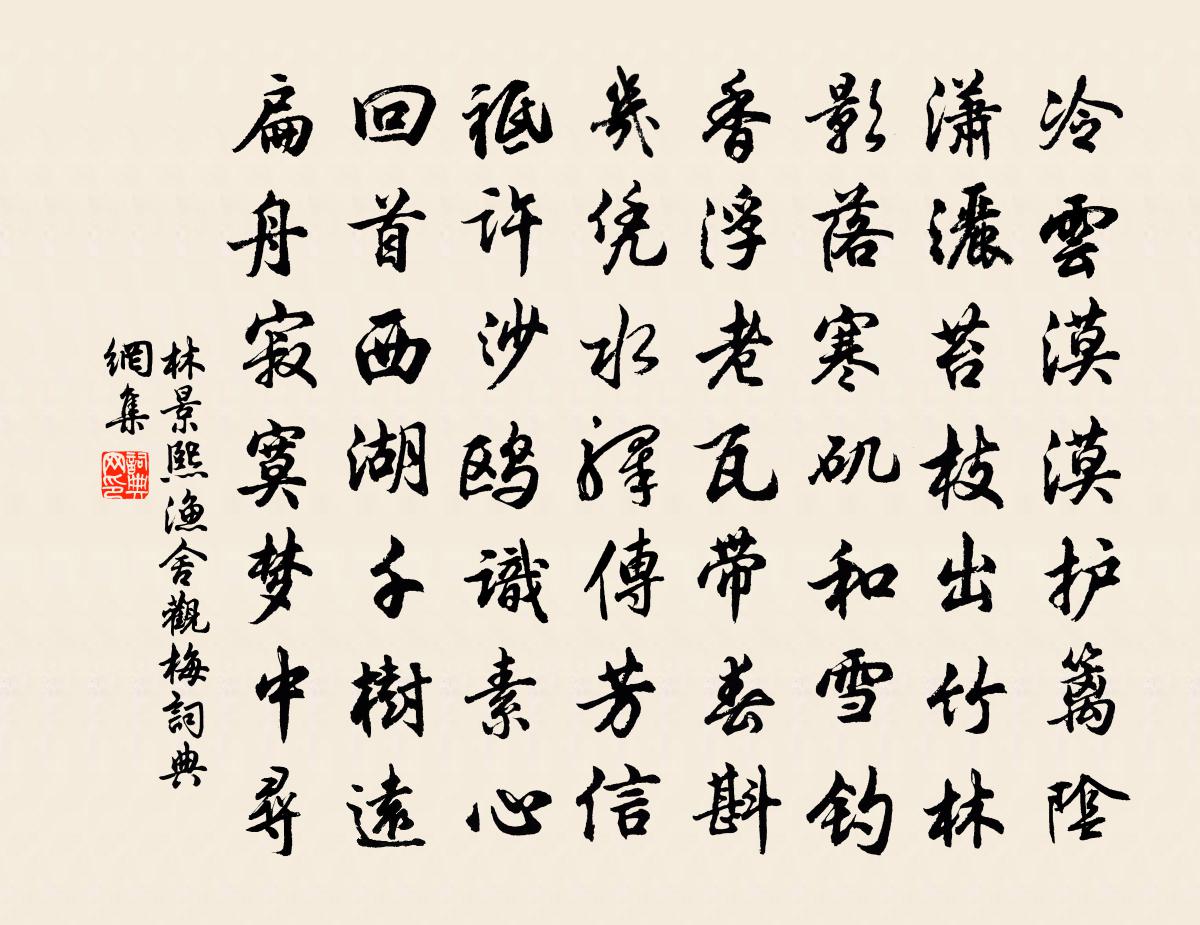 冷雲漠漠护篱陰
瀟灑苔枝出竹林
影落寒矶和雪钓
香浮老瓦带春斟
幾凭水驛傳芳信
祗许沙鸥識素心
回首西湖千樹遠
扁舟寂寞梦中尋
林景熙漁舍觀梅詞典
網集
詞典
网印